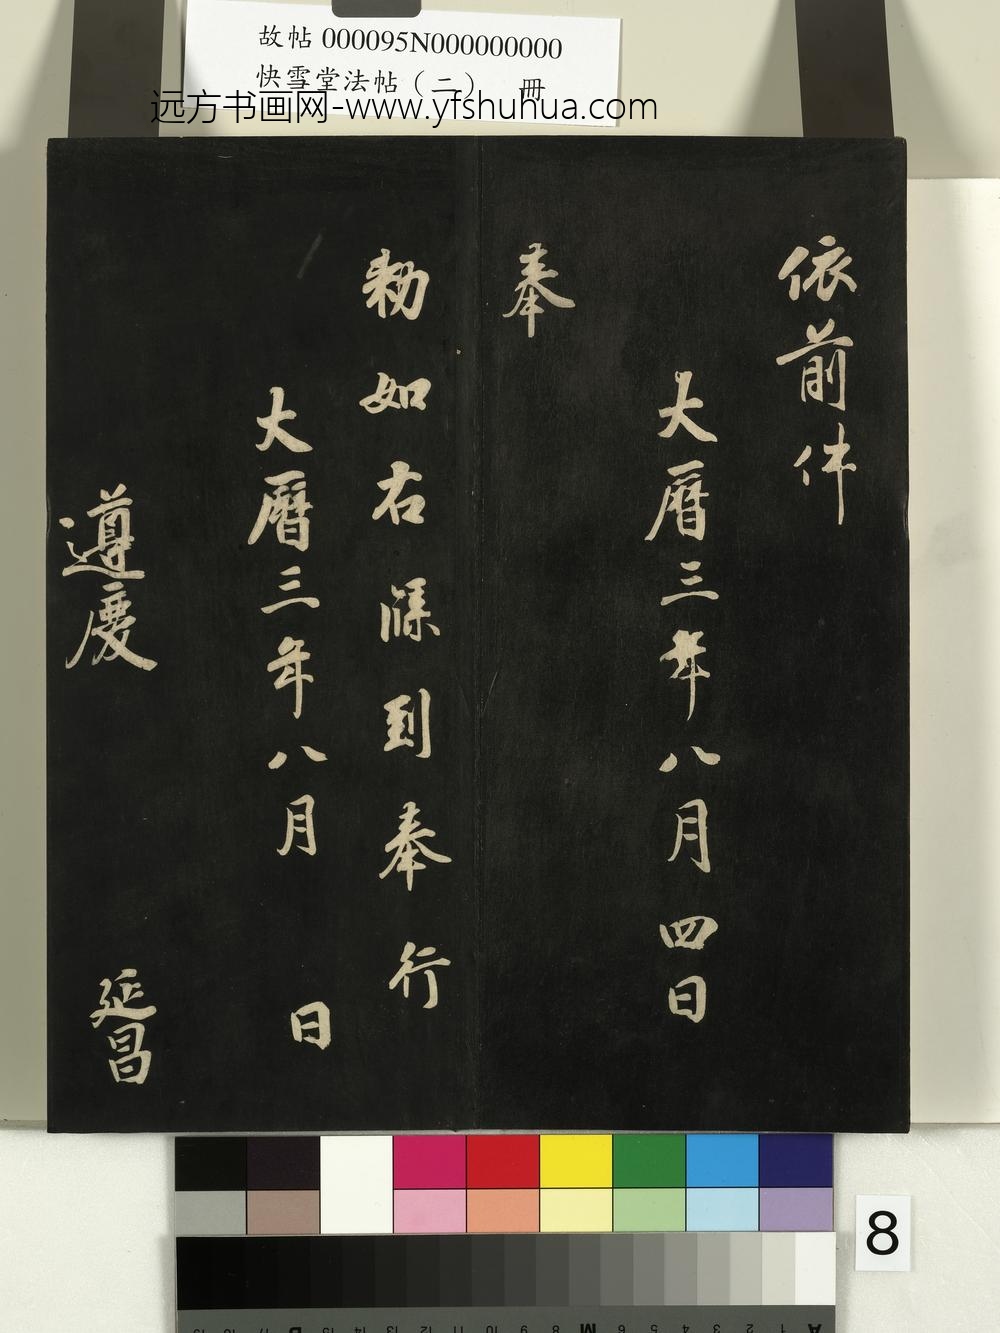 故帖 000095N000000000
快雪堂法帖（二） 冊
远方书画网-www.yfshuhua.com
依前件
大曆三年八月四日
奉
勅如右牒到奉行
大曆三年八月 日
遵慶 延昌
8